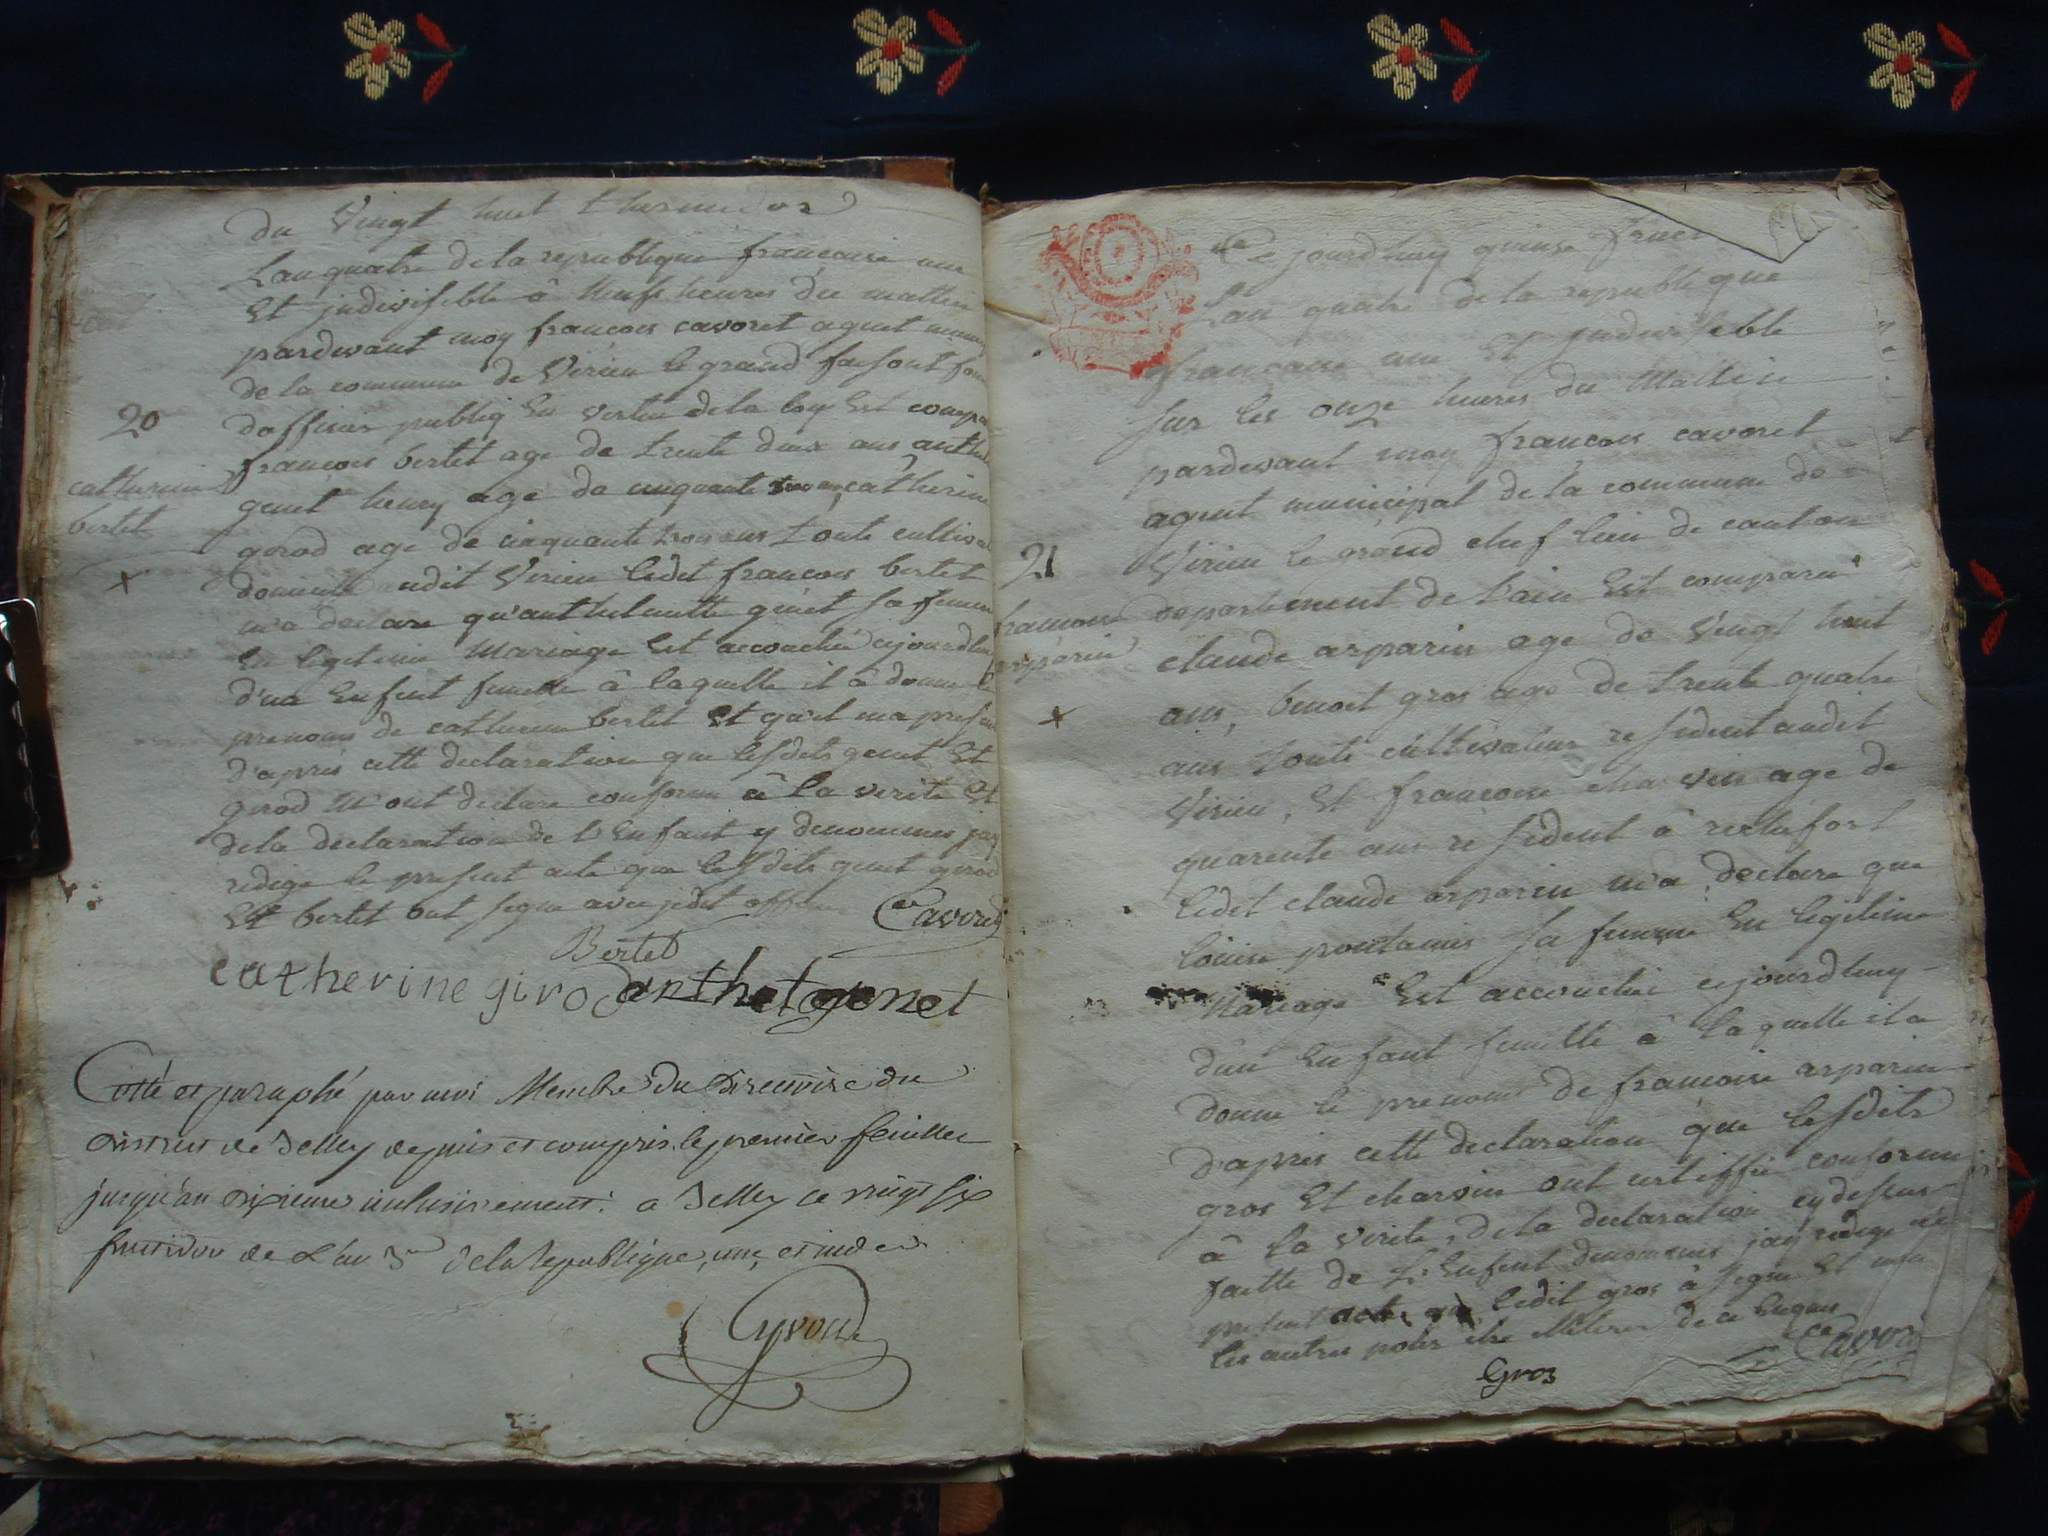 du Vingt huit thermidor
Lan quatre de la republique francoise une
Et jndivisible â Neufs heures du mattin
pardevant moy francois cavoret agent muni
de la commune de Virieu le grand faisont fon
dofficier publiq En vertu de la loy Est compa
20
francois bertet age de trente deux ans anthel
catherine
genet henry age de cinquante catherine
bertet
gerod age de cinquante trois ans toute cultiva
x
domicille udit Virieu ledit francois bertet
m'a declare qu'anthelmette genet sa femme
En legitime Mariage Est accouchée ajourdhuy
d'un Enfent femelle â laquelle il â donne le
prenoms de catherine bertet Et qu'il ma presente
d'apres cette declaration que lesdits genet Et
gerod M'ont declare conforme â la verite Et
de la declaration de l'Enfant y denommes jay
redige le present acte que lesdits genet gerod
Et bertet ont signe avec jedit officier Cavoret
Bertet
catherine girod anthel genet
Cotté et paraphé par moi Membre du Directoire du
District de Belley depuis et compris le premier feuillet
jusqu'au dixieme inclusivement. a Belley ce vingt six
fructidor de L'an 3me de la Republique, une, et indev.
Cejourdhuy quinse fruct
Lan quatre de la republique
francaise une Et jndivisible
sur les onze heures du Mattin
pardevant moy francois cavoret
agent municipal de la commune de
21
Virieu le grand chef lieu de canton
francoise
departement de l'ain Est comparu
arparin
claude arparin age de Vingt huit
x
ans, benoit gros age de trente quatre
ans toute cultivateur resident audit
Virieu, Et francoise charvin age de
quarente ans resident â rochefort
ledit claude arparin m'a declare que
louise pontanier sa femme En legitime
Mariage Est accouchée cejourdhuy
d'un Enfant femelle â la quelle il a
donne le prenoms de francoise arparin
d'apres cette declaration que lesdits
gros Et charvin ont certiffie conforme
â la Verite, de la declaration cydessus
faitte de L'Enfent denommes jay redige ce
present acte que ledit gros â signe Et non
les autres pour etre illiteres de ce Enquis
Cavoret
Gros